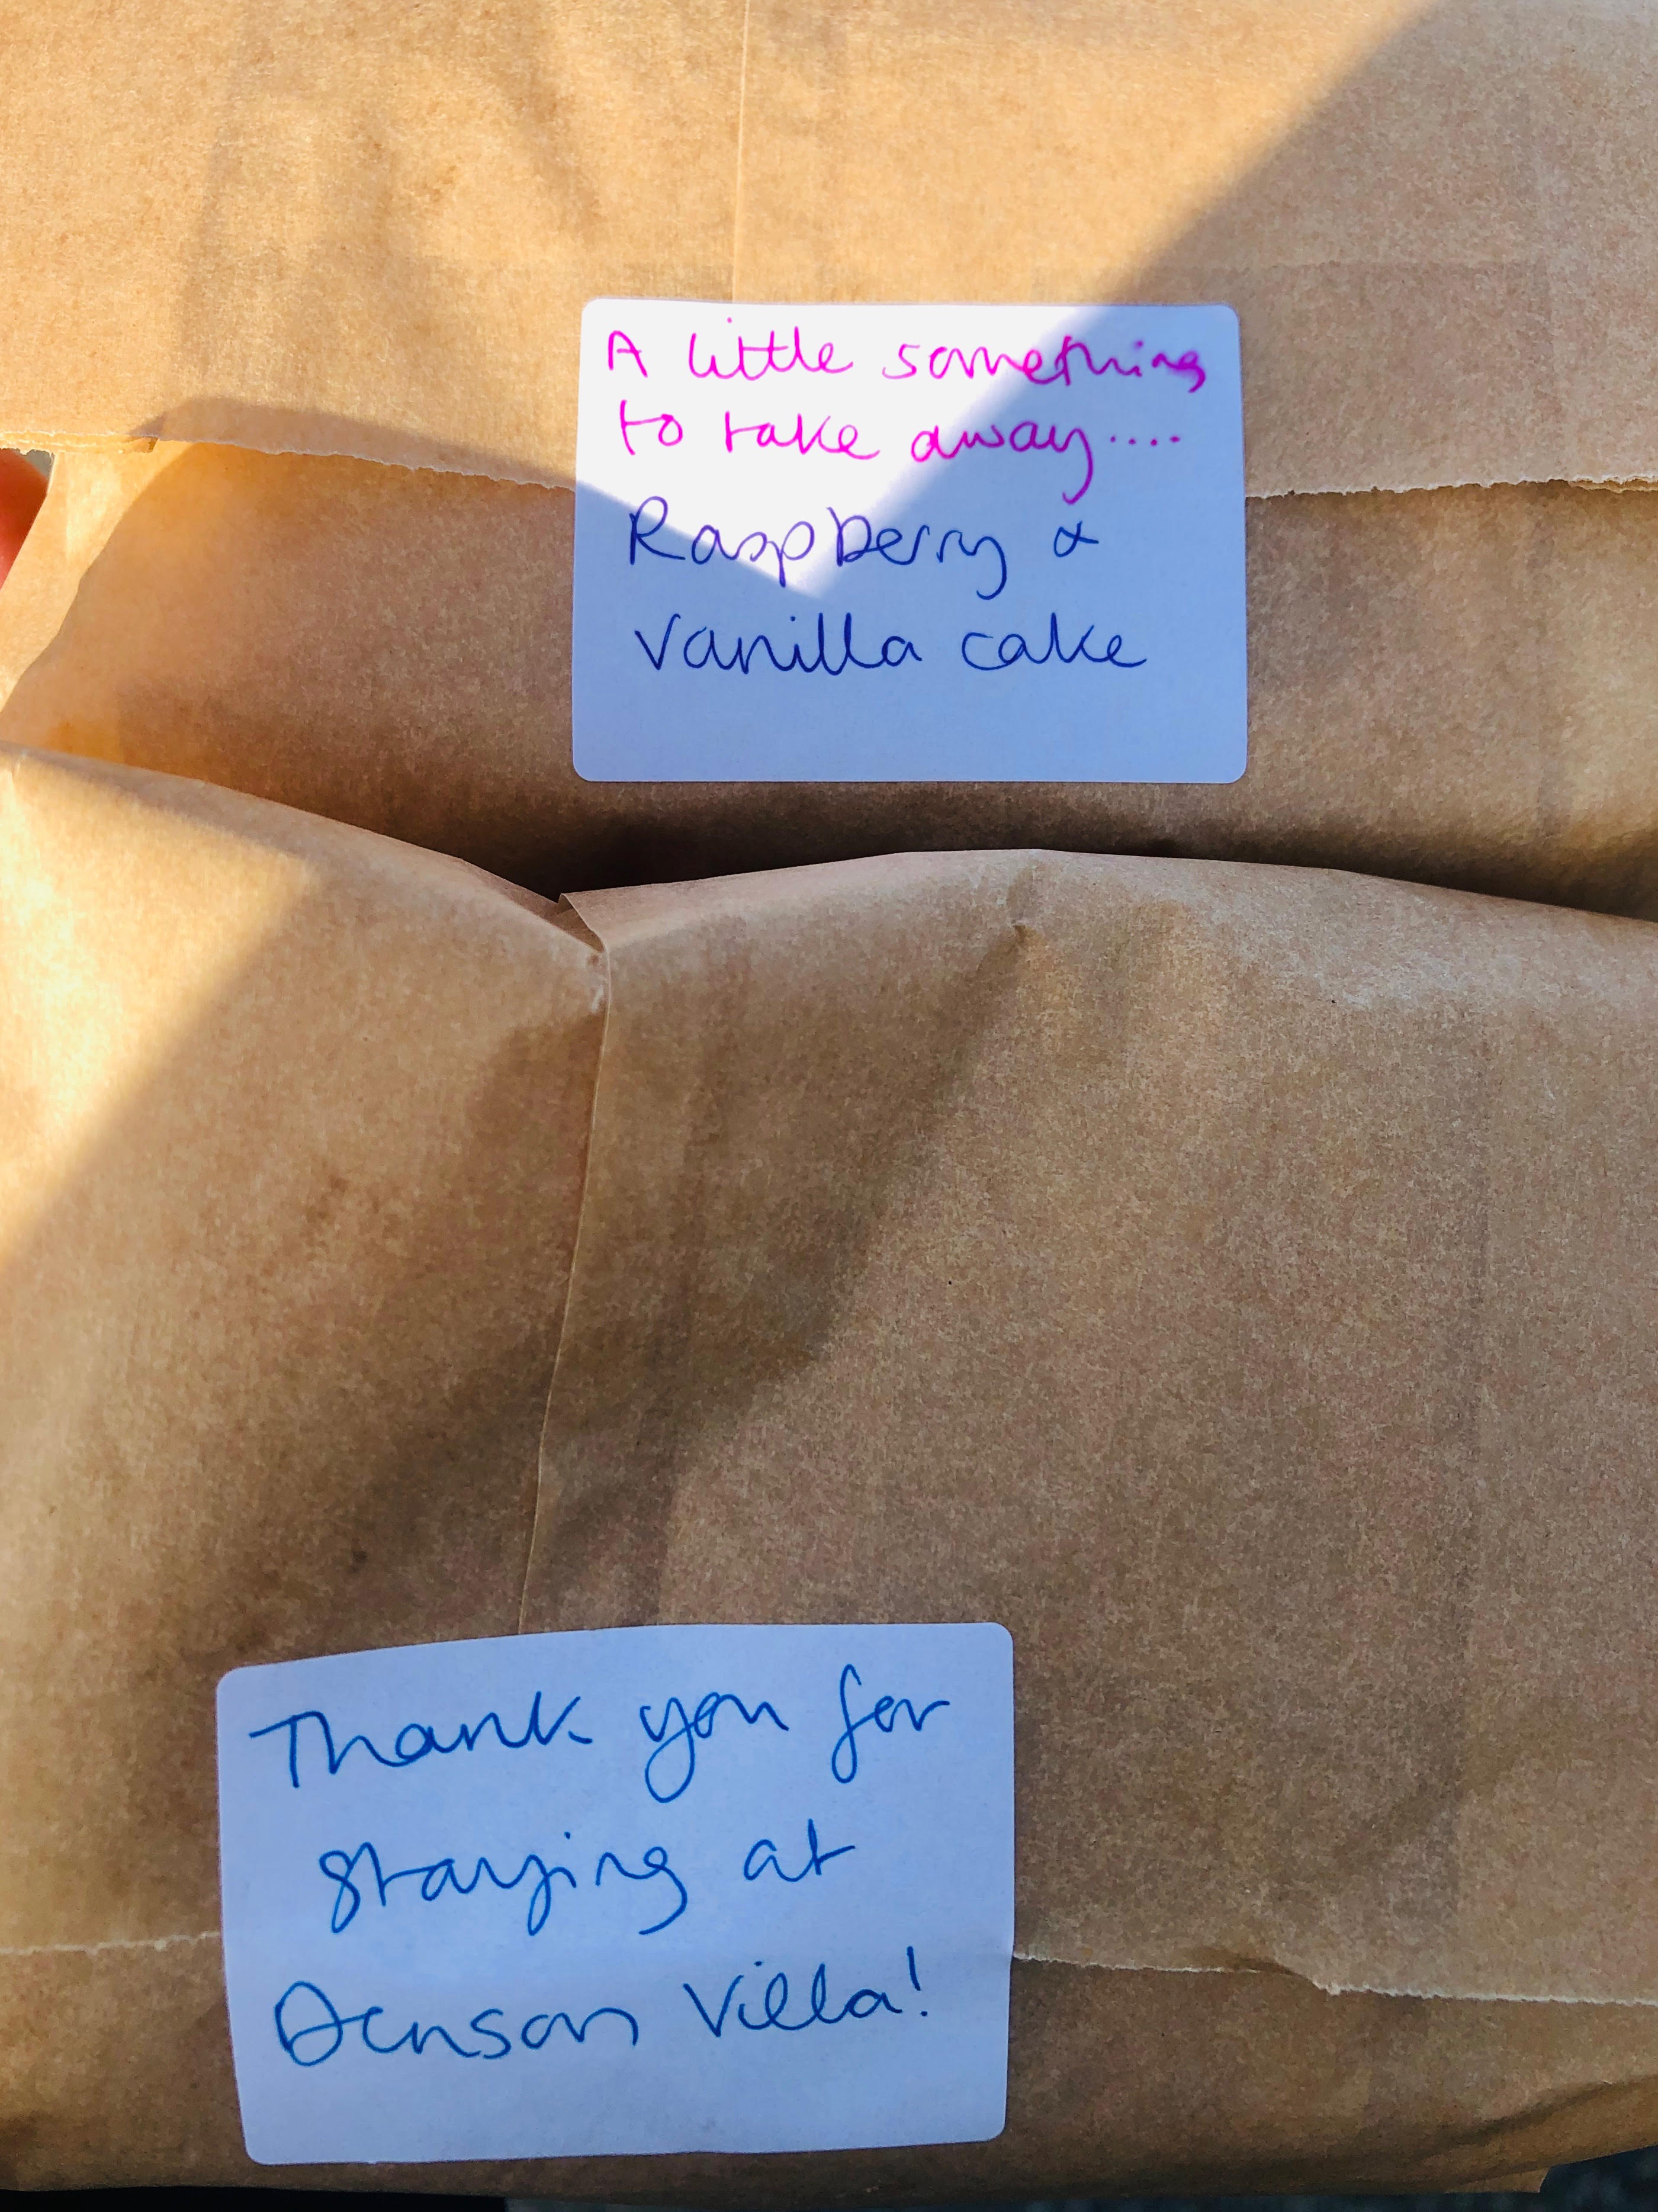 A little something
to take away....
Raspberry &
Vanilla cake
Thank you for
staying at
Denson Villa!